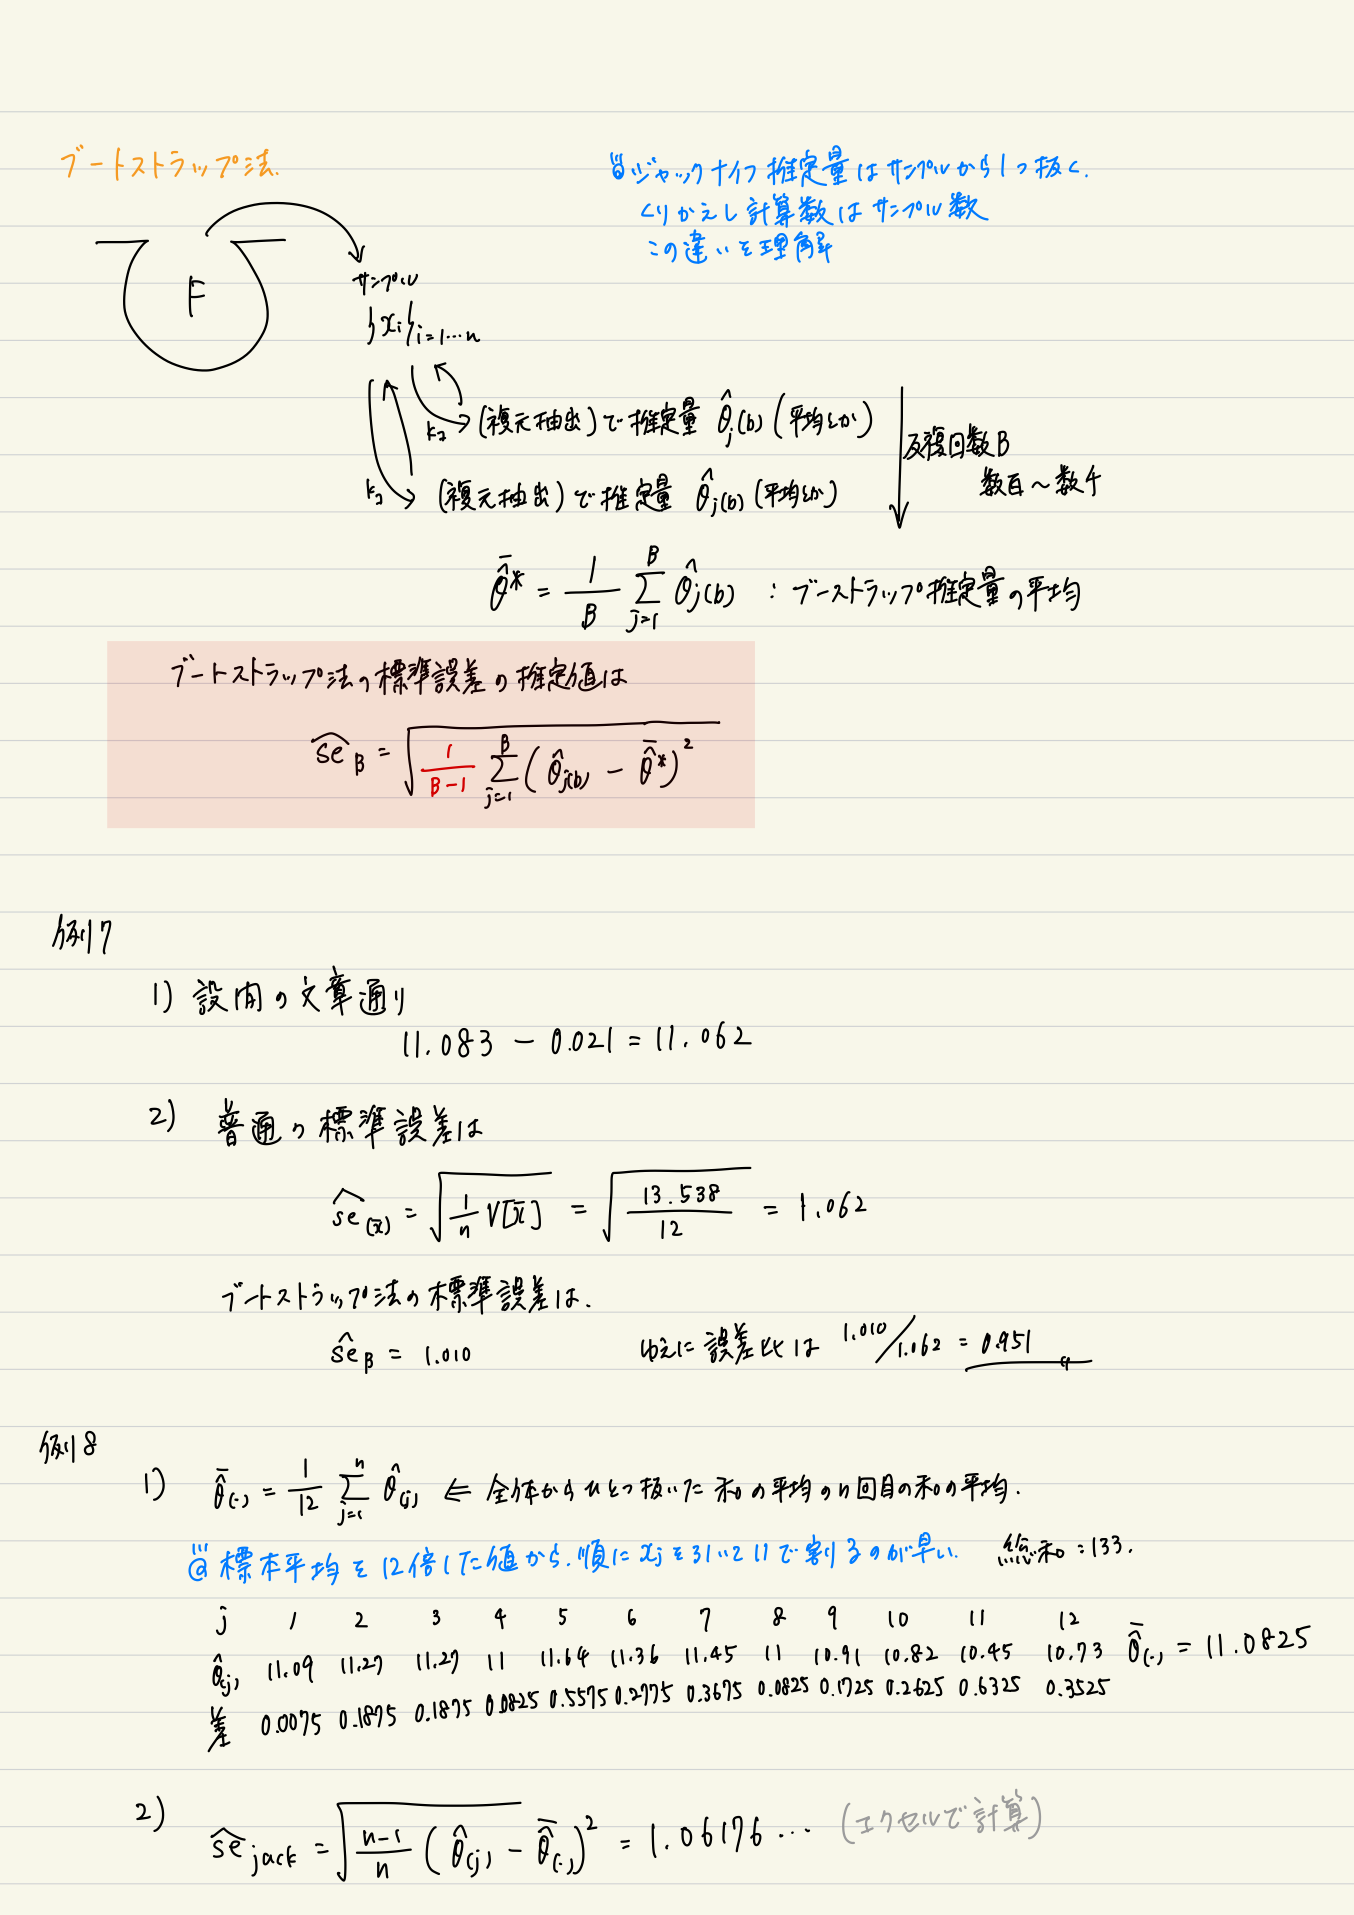 ブートストラップ法.
ジャックナイフ推定量はサンプルから1つ抜く.
くりかえし計算数はサンプル数
この違いを理解
F
サンプル
{xi}i=1…n
(復元抽出)で推定量 θ̂j(b) (平均とか)
反復回数B
数百〜数千
(復元抽出)で推定量 θ̂j(b) (平均とか)
θ̂̄* = 1/B Σ_{j=1}^{B} θ̂j(b) : ブーストラップ推定量の平均
ブートストラップ法の標準誤差の推定値は
ŝe_B = √(1/(B-1) Σ_{j=1}^{B} (θ̂j(b) − θ̂̄*)²
例7
1) 設問の文章通り
11.083 − 0.021 = 11.062
2) 普通の標準誤差は
ŝe(x̄) = √(1/n V[x̄]) = √(13.538/12) = 1.062
ブートストラップ法の標準誤差は.
ŝe_B = 1.010 ゆえに誤差比は 1.010/1.062 = 0.951
例8
1) θ̂̄(·) = 1/12 Σ_{j=1}^{n} θ̂(j) ⇐ 全体からひとつ抜いた和の平均のn回目の和の平均.
@ 標本平均を12倍した値から.順にxjを引いて11で割るのが早い. 総和:133.
j 1 2 3 4 5 6 7 8 9 10 11 12
θ̂(j) 11.09 11.27 11.27 11 11.64 11.36 11.45 11 10.91 10.82 10.45 10.73 θ̂̄(·) = 11.0825
差 0.0075 0.1875 0.1875 0.0825 0.5575 0.2775 0.3675 0.0825 0.1725 0.2625 0.6325 0.3525
2) ŝe jack = √((n-1)/n (θ̂(j) − θ̂̄(·))² = 1.06176… (エクセルで計算)